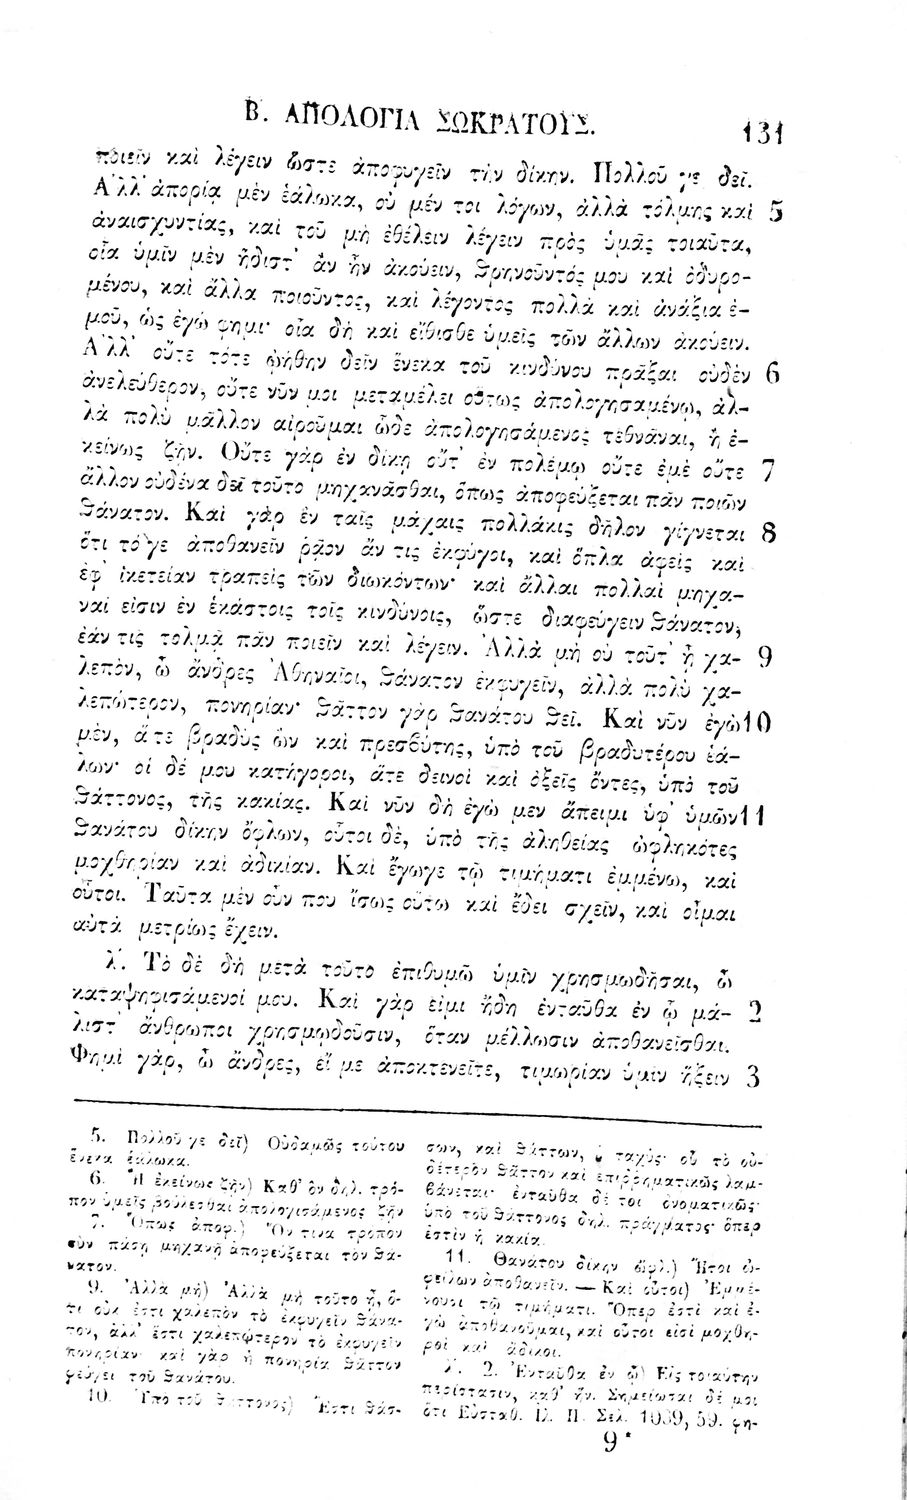 Β. ΑΠΟΛΟΓΙΑ ΣΩΚΡΑΤΟΥΣ. 131
ποιεῖν καὶ λέγειν ὥστε ἀποφυγεῖν τὴν δίκην. Πολλοῦ γε δεῖ.
Ἀλλ' ἀπορίᾳ μὲν ἑάλωκα, οὐ μέν τοι λόγων, ἀλλὰ τόλμης καὶ 5
ἀναισχυντίας, καὶ τοῦ μὴ ἐθέλειν λέγειν πρὸς ὑμᾶς τοιαῦτα,
οἷα ὑμῖν μὲν ἥδιστ' ἂν ἦν ἀκούειν, θρηνοῦντός μου καὶ ὀδυρο-
μένου, καὶ ἄλλα ποιοῦντος, καὶ λέγοντος πολλὰ καὶ ἀνάξια ἐ-
μοῦ, ὡς ἐγώ φημι· οἷα δὴ καὶ εἴθισθε ὑμεῖς τῶν ἄλλων ἀκούειν.
Ἀλλ' οὔτε τότε ᾠήθην δεῖν ἕνεκα τοῦ κινδύνου πρᾶξαι οὐδὲν 6
ἀνελεύθερον, οὔτε νῦν μοι μεταμέλει οὕτως ἀπολογησαμένῳ, ἀλ-
λὰ πολὺ μᾶλλον αἱροῦμαι ὧδε ἀπολογησάμενος τεθνάναι, ἢ ἐ-
κείνως ζῆν. Οὔτε γὰρ ἐν δίκῃ οὔτ' ἐν πολέμῳ οὔτε ἐμὲ οὔτε 7
ἄλλον οὐδένα δεῖ τοῦτο μηχανᾶσθαι, ὅπως ἀποφεύξεται πᾶν ποιῶν
θάνατον. Καὶ γὰρ ἐν ταῖς μάχαις πολλάκις δῆλον γίγνεται 8
ὅτι τό γε ἀποθανεῖν ῥᾷον ἄν τις ἐκφύγοι, καὶ ὅπλα ἀφεὶς καὶ
ἐφ' ἱκετείαν τραπεὶς τῶν διωκόντων· καὶ ἄλλαι πολλαὶ μηχα-
ναί εἰσιν ἐν ἑκάστοις τοῖς κινδύνοις, ὥστε διαφεύγειν θάνατον,
ἐάν τις τολμᾷ πᾶν ποιεῖν καὶ λέγειν. Ἀλλὰ μὴ οὐ τοῦτ' ᾖ χα- 9
λεπὸν, ὦ ἄνδρες Ἀθηναῖοι, θάνατον ἐκφυγεῖν, ἀλλὰ πολὺ χα-
λεπώτερον, πονηρίαν· θᾶττον γὰρ θανάτου θεῖ. Καὶ νῦν ἐγὼ 10
μὲν, ἅτε βραδὺς ὢν καὶ πρεσβύτης, ὑπὸ τοῦ βραδυτέρου ἑά-
λων· οἱ δέ μου κατήγοροι, ἅτε δεινοὶ καὶ ὀξεῖς ὄντες, ὑπὸ τοῦ
θάττονος, τῆς κακίας. Καὶ νῦν δὴ ἐγὼ μεν ἄπειμι ὑφ' ὑμῶν 11
θανάτου δίκην ὄφλων, οὗτοι δὲ, ὑπὸ τῆς ἀληθείας ὠφληκότες
μοχθηρίαν καὶ ἀδικίαν. Καὶ ἔγωγε τῷ τιμήματι ἐμμένω, καὶ
οὗτοι. Ταῦτα μὲν οὖν που ἴσως οὕτω καὶ ἔδει σχεῖν, καὶ οἶμαι
αὐτὰ μετρίως ἔχειν.
λ'. Τὸ δὲ δὴ μετὰ τοῦτο ἐπιθυμῶ ὑμῖν χρησμῳδῆσαι, ὦ
καταψηφισάμενοί μου. Καὶ γάρ εἰμι ἤδη ἐνταῦθα ἐν ᾧ μά- 2
λιστ' ἄνθρωποι χρησμῳδοῦσιν, ὅταν μέλλωσιν ἀποθανεῖσθαι.
Φημὶ γὰρ, ὦ ἄνδρες, εἴ με ἀποκτενεῖτε, τιμωρίαν ὑμῖν ἥξειν 3
5. Πολλοῦ γε δεῖ) Οὐδαμῶς τούτου
ἕνεκα ἑάλωκα.
6. Ἢ ἐκείνως ζῆν) Καθ' ὃν δηλ. τρό-
πον ὑμεῖς βούλεσθαι ἀπολογισάμενος ζῆν
7. Ὅπως ἀποφ.) Ὅν τινα τρόπον
σὺν πάσῃ μηχανῇ ἀποφεύξεται τὸν θά-
νατον.
9. Ἀλλὰ μὴ) Ἀλλὰ μὴ τοῦτο ᾖ, ὅ-
τι οὐκ ἔστι χαλεπὸν τὸ ἐκφυγεῖν θάνα-
τον, ἀλλ' ἔστι χαλεπώτερον τὸ ἐκφυγεῖν
πονηρίαν· καὶ γὰρ ἡ πονηρία θᾶττον
φεύγει τοῦ θανάτου.
10. Ὑπὸ τοῦ θάττονος) Ἔστι θάσ-
σων, καὶ θάττων, ὁ ταχύς· οὗ τὸ οὐ-
δέτερον θᾶττον καὶ ἐπιρρηματικῶς λαμ-
βάνεται· ἐνταῦθα δέ τοι ὀνοματικῶς·
ὑπὸ τοῦ θάττονος δηλ. πράγματος· ὅπερ
ἐστὶν ἡ κακία.
11. Θανάτου δίκην ὤφλ.) Ἤτοι ὠ-
φείλων ἀποθανεῖν. — Καὶ οὗτοι) Ἐμμέ-
νουσι τῷ τιμήματι. Ὅπερ ἐστὶ καὶ ἐ-
γὼ ἀποθανοῦμαι, καὶ οὗτοι εἰσὶ μοχθη-
ροὶ καὶ ἄδικοι.
λ'. 2. Ἐνταῦθα ἐν ᾧ) Εἰς τοιαύτην
περίστασιν, καθ' ἥν. Σημείωσαι δέ μοι
ὅτι Εὐσταθ. Ἰλ. Π. Σελ. 1089, 59. φη-
9*